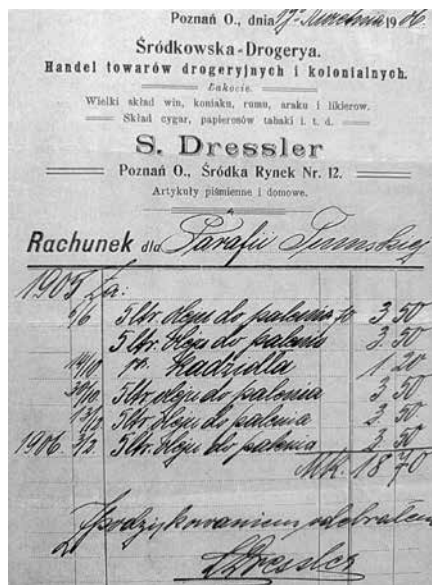 Poznań O., dnia 17go Kwietnia 1906.
Śródkowska-Drogerya.
Handel towarów drogeryjnych i kolonialnych.
Łakocie.
Wielki skład win, koniaku, rumu, araku i likierow.
Skład cygar, papierosów tabaki i. t. d.
S. Dressler
Poznań O., Śródka Rynek Nr. 12.
Artykuły piśmienne i domowe.
Rachunek dla Parafii Tumskiej
1905 Za:
5/6 5 ltr. oleju do palenia 3 50
5 ltr. oleju do palenia 3 50
14/10 Kadzidła 1 20
30/10 5 ltr oleju do palenia 3 50
13/12 5 ltr oleju do palenia 3 50
1906. 3/2 5 ltr. oleju do palenia 3 50
MK. 18 70
Z podziękowaniem odebrałem
S Dressler